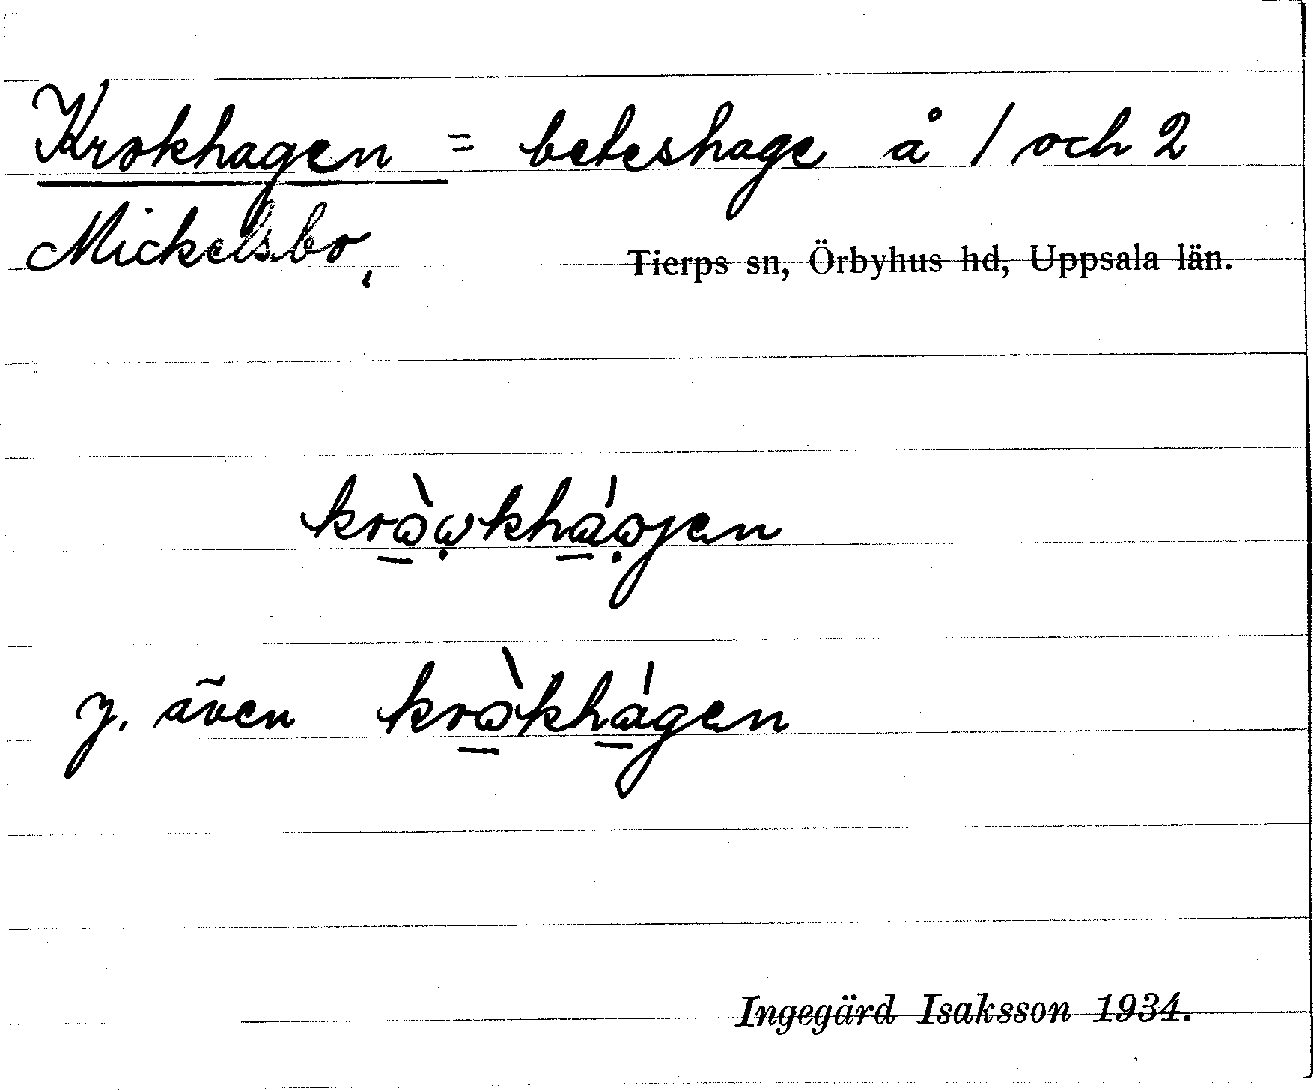 Krokhagen = beteshage å 1 och 2
Mickelsbo,
Tierps sn, Örbyhus hd, Uppsala län.
krɷ̠̀ɷ̣khá̠ạjen
y. även krɷ̠̀khá̠gen
Ingegärd Isaksson 1934.